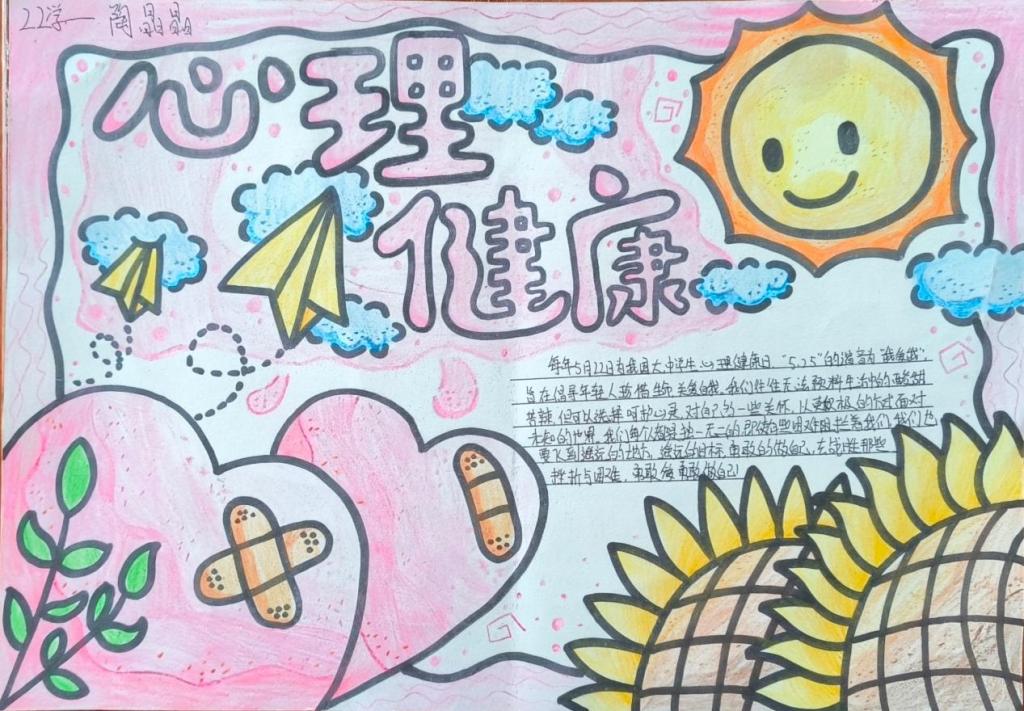 22学一 陶晶晶
心理
健康
每年5月22日为我国大中学生心理健康日，"5.25"的谐音为"我爱我"，
旨在倡导年轻人珍惜生命关爱自我，我们往往无法预料生活中的酸甜
苦辣，但可以选择呵护心灵，对自己多一些关怀，以更积极的方式面对
未知的世界，我们每个都是独一无二的，即使困难阻拦着我们，我们也
要飞到遥远的地方，遥远的目标，勇敢的做自己，去战胜那些
挫折与困难，勇敢做自己！